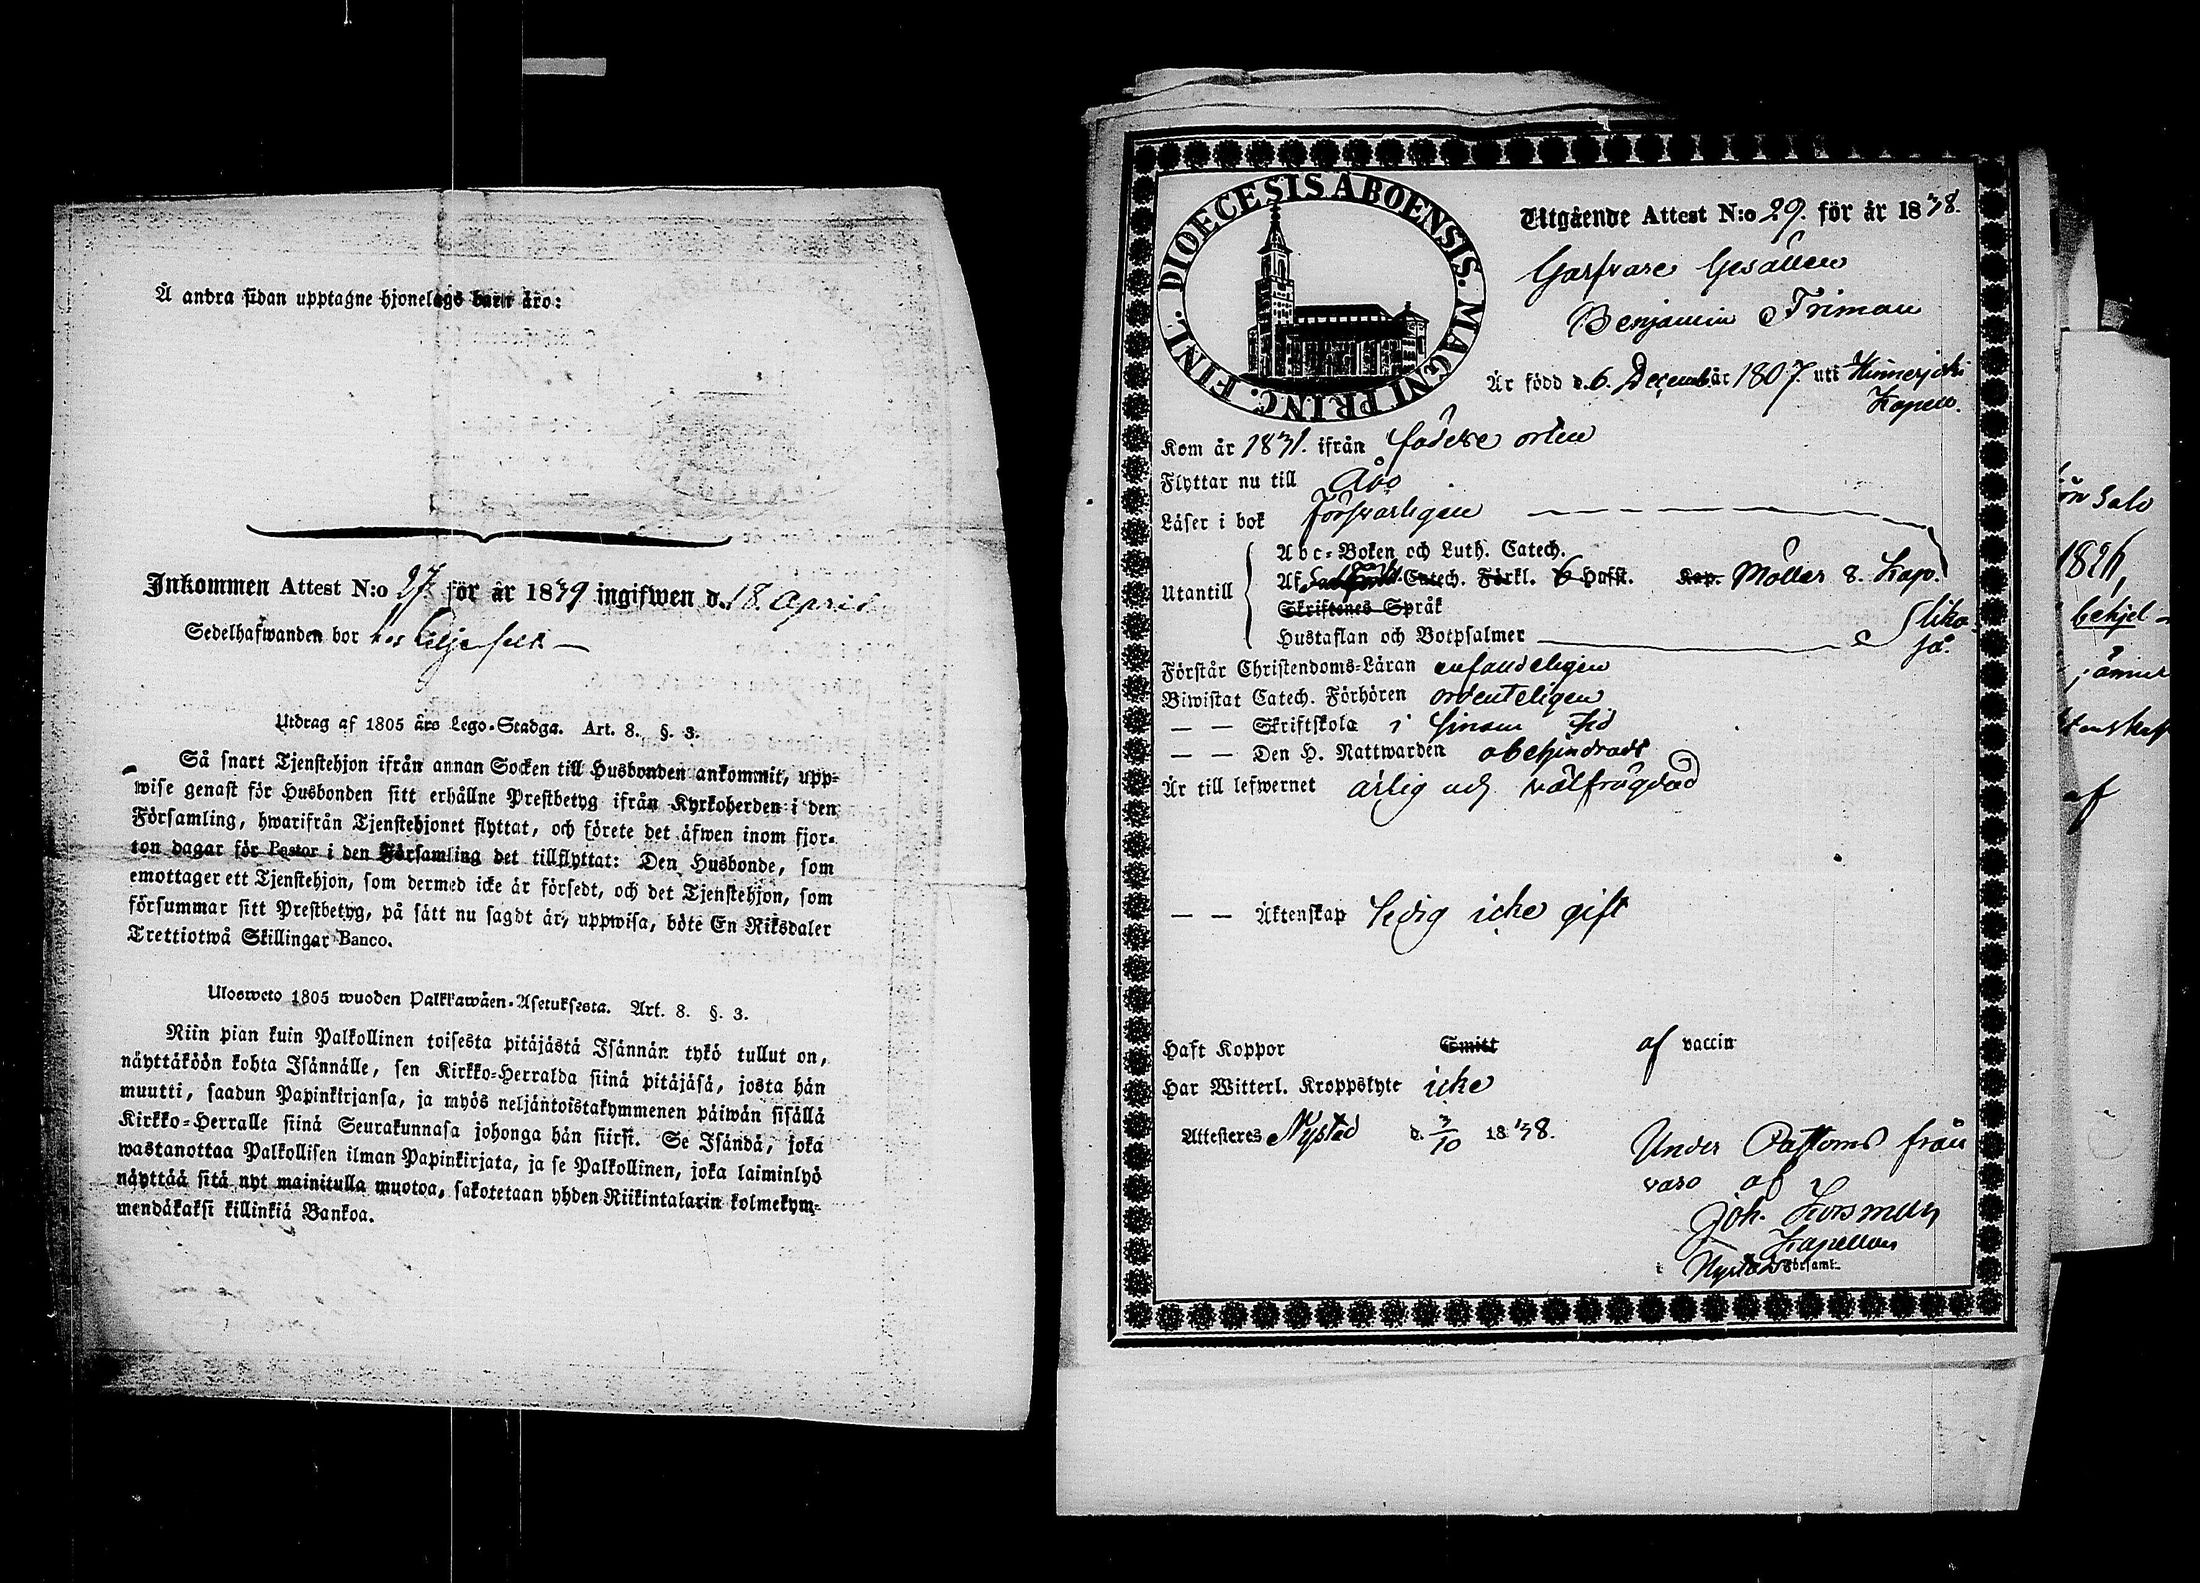 Å andra sidan upptagne hjonelags barn äro:
Inkommen Attest N:o 27. för år 1839 ingifwen d. 18. April
Sedelhafwanden bor hos Liljefelt
Utdrag af 1805 års Lego-Stadga. Art. 8. §. 3.
Så snart Tjenstehjon ifrån annan Socken till Husbonden ankommit, upp-
wise genast för Husbonden sitt erhållne Prestbetyg ifrån Kyrkoherden i den
Församling, hwarifrån Tjenstehjonet flyttat, och förete det äfwen inom fjor-
ton dagar för Pastor i den Församling det tillflyttat: Den Husbonde, som
emottager ett Tjenstehjon, som dermed icke är försedt, och det Tjenstehjon, som
försummar sitt Prestbetyg, på sätt nu sagdt är, uppwisa, böte En Riksdaler
Trettiotwå Skillingar Banco.
Ulosweto 1805 wuoden Palkkawäen-Asetuksesta. Art. 8. §. 3.
Niin pian kuin Palkollinen toisesta pitäjästä Isännän tykö tullut on,
näyttäköön kohta Isännälle, sen Kirkko-Herralda siinä pitäjäsä, josta hän
muutti, saadun Papinkirjansa, ja myös neljäntoistakymmenen päiwän sisällä
Kirkko-Herralle siinä Seurakunnasa johonga hän siirsi. Se Isändä, joka
wastanottaa Palkollisen ilman Papinkirjata, ja se Palkollinen, joka laiminlyö
näyttää sitä nyt mainitulla muotoa, sakotetaan yhden Riikintalarin kolmekym-
mendäkaksi killinkiä Bankoa.
DIOECESIS ABOENSIS. MAGNI PRINC. FINL.
Utgående Attest N:o 29. för år 1838.
Garfvare Gesällen
Benjamin Friman
Är född d. 6. Decembr år 1807. uti Hinnerjoki
Kapell.
Kom år 1831. ifrån födelse orten
Flyttar nu till Åbo
Läser i bok försvarligen
Abc-Boken och Luth. Catech.
Utantill Af Catech. Förkl. 6 Hufst. Kap. Möller 8. Kap.
Skriftenes Språk
Hustaflan och Botpsalmer lika-
så.
Förstår Christendoms-Läran enfaldeligen
Biwistat Catech. Förhören ordenteligen
— — Skriftskola i sinom tid
— — Den H. Nattwarden obehindradt
Är till lefwernet ärlig och välfrägdad
— — Äktenskap ledig icke gift
Haft Koppor Smitt af vaccin
Har Witterl. Kroppslyte icke
Attesteres Nystad d. 3/10 1838.
Under Pastoris från
varo af
Joh. Forsman
Kapellan
i Nystads Församl.
Salo
1826,
behjel-
af